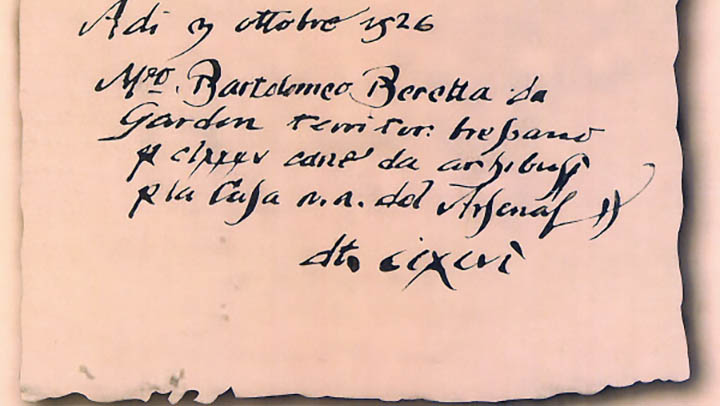 Adi 3 ottobre 1526
Mro. Bartolomeo Beretta da
Gardon territor: bressano
p clxxxv cane da archibusi
p la Casa n. n. del Arsenal
dt. cclxxxxvi